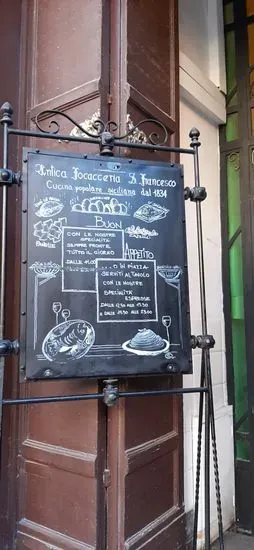 Antica Focacceria S. Francesco
Cucina popolare siciliana dal 1834
BUON
APPETITO
CON LE NOSTRE
SPECIALITÀ
SEMPRE PRONTE
TUTTO IL GIORNO
DALLE 11.00
...O IN PIAZZA
SERVITI AL TAVOLO
CON LE NOSTRE
SPECIALITÀ
ESPRESSE
DALLE 12.30 ALLE 15.30
E DALLE 19.30 ALLE 23.00